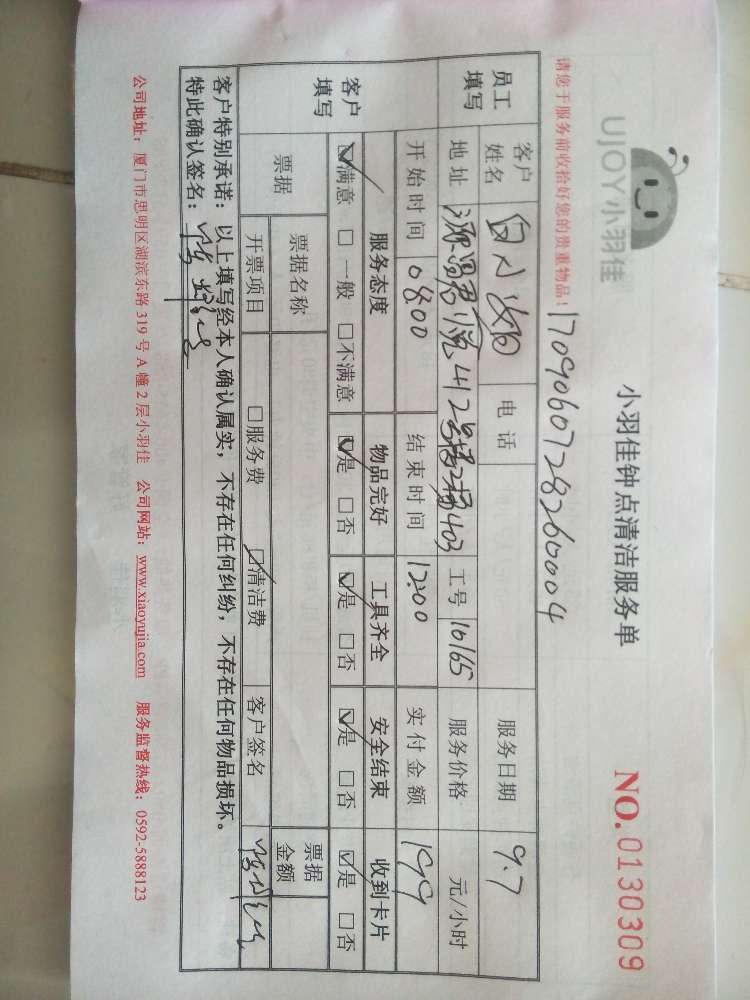 UJOY小羽佳
小羽佳钟点清洁服务单
NO.0130309
请您于服务前收拾好您的贵重物品！
1709060728260004
员工填写
客户姓名 白小姐 电话 服务日期 9.7
地址 源昌君悦 412 403 工号 10165 服务价格 元/小时
开始时间 0800 结束时间 1200 实付金额 199
客户填写
服务态度 物品完好 工具齐全 安全结束 收到卡片
☑满意 □一般 □不满意 ☑是 □否 ☑是 □否 ☑是 □否 ☑是 □否
票据
票据名称 票据金额
开票项目 □服务费 ☑清洁费 客户签名
客户特别承诺：以上填写经本人确认属实，不存在任何纠纷，不存在任何物品损坏。
特此确认签名：
公司地址：厦门市思明区湖滨东路 319 号 A 幢 2 层小羽佳 公司网站：www.xiaoyujia.com 服务监督热线：0592-5888123